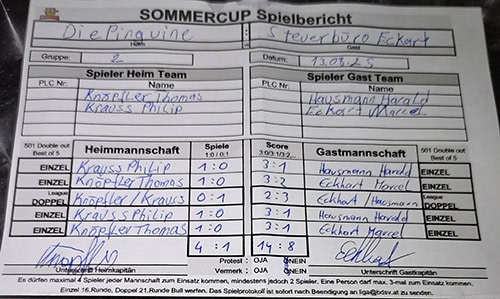 SOMMERCUP Spielbericht
Die Pinguine : Steuerbüro Eckart
Heim Gast
Gruppe: 2 Datum: 13.08.25
Spieler Heim Team Spieler Gast Team
PLC Nr: Name PLC Nr: Name
Knöpfler Thomas Hausmann Harald
Krauss Philip Eckart Marcel
501 Double out Best of 5 Heimmannschaft Spiele 1:0 / 0:1 Score 3:0/3:1/3:2... Gastmannschaft 501 Double out Best of 5
EINZEL Krauss Philip 1:0 3:1 Hausmann Harald EINZEL
EINZEL Knöpfler Thomas 1:0 3:2 Eckhart Marcel EINZEL
League DOPPEL Knöpfler / Krauss 0:1 2:3 Eckhart / Hausmann League DOPPEL
EINZEL Krauss Philip 1:0 3:1 Hausmann Harald EINZEL
EINZEL Knöpfler Thomas 1:0 3:1 Eckhart Marcel EINZEL
4:1 14:8
Protest : OJA ONEIN
Unterschrift Heimkapitän Vermerk : OJA ONEIN Unterschrift Gastkapitän
Es dürfen maximal 4 Spieler jeder Mannschaft zum Einsatz kommen, mindestens jedoch 2 Spieler. Eine Person darf max. 3-mal zum Einsatz kommen.
Einzel 16.Runde, Doppel 21.Runde Bull werfen. Das Spielprotokoll ist sofort nach Beendigung an liga@tbdsv.at zu senden.